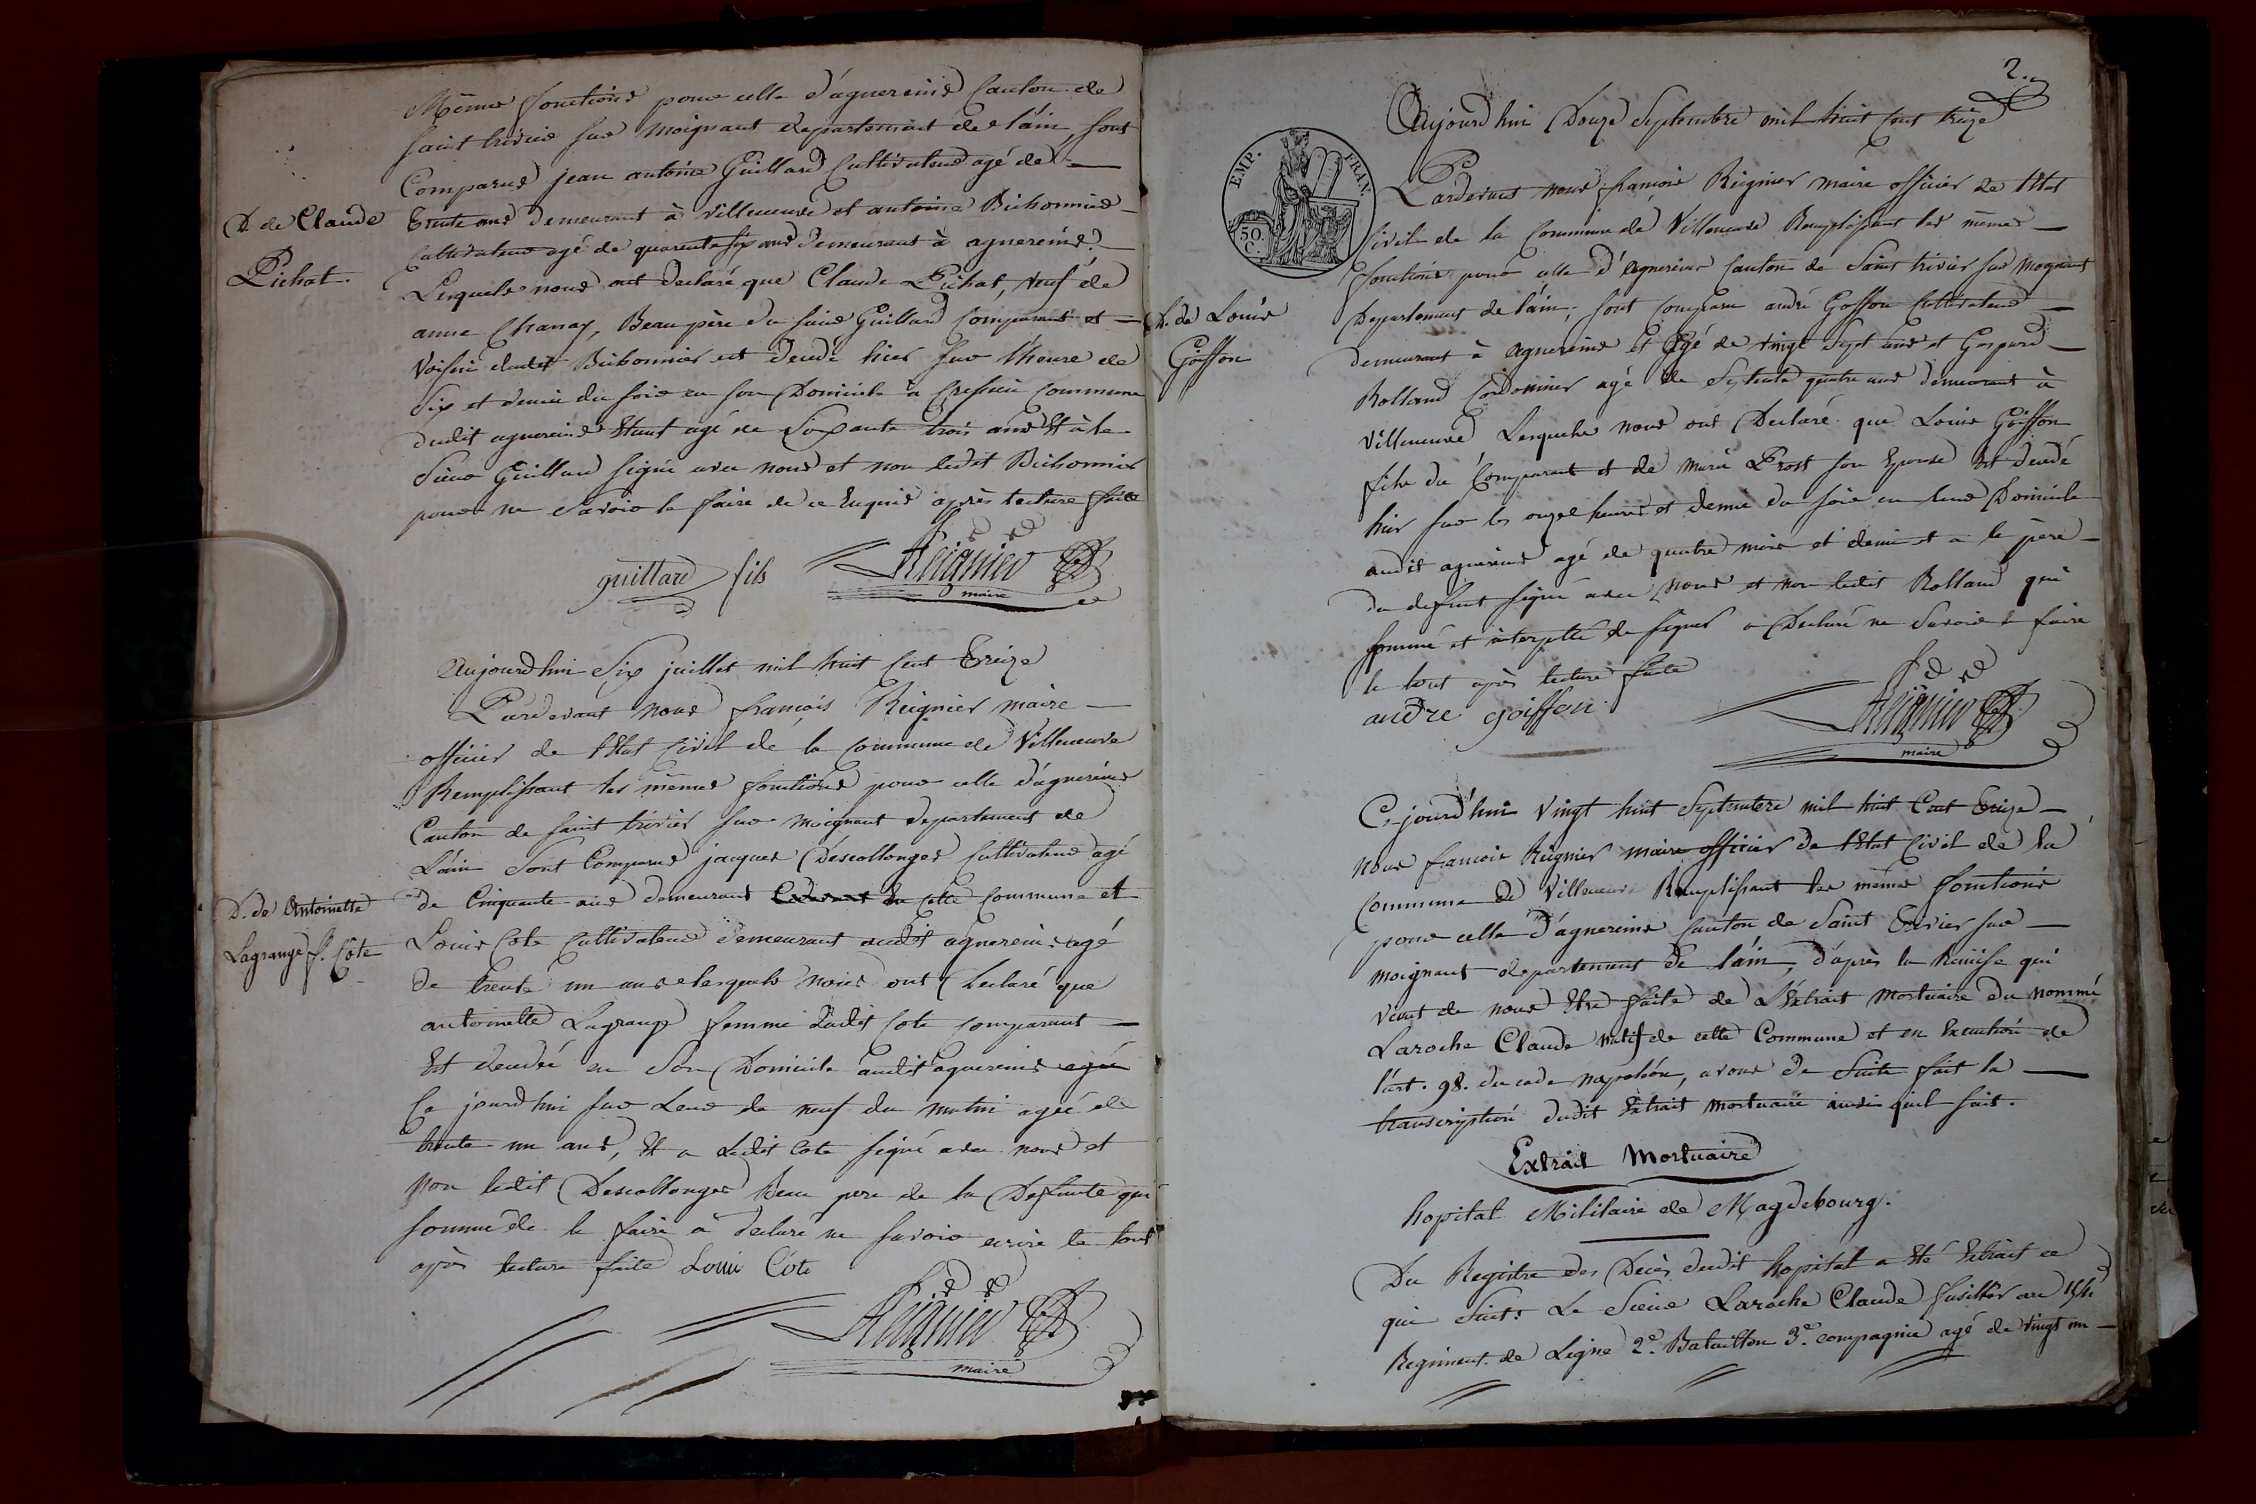 Même fonctions pour celle d'agnereins Canton de
saint trivier sur moignant departement de l'ain, sont
Comparus jean antoine Guillard Cultivateur agé de
trente ans demeurant à villeneuve et antoine Bichonnier
Cultivateur agé de quarente six ans demeurant à agnereins.
D. de Claude
Pichat.
Lesquels nous ont declaré que Claude Pichat, veuf de
anne Chanay, Beau père du sieur Guillard Comparant et
Voisin dudit Bichonnier est decedé hier sur l'heure de
Six et demie du soir en son Domicile à commune
dudit agnereins Etant agé de Soixante trois ans Et à le
Sieur Guillard signé avec nous et non ledit Bichonnier
pour ne Savoir le faire de ce Enquis après lecture faite
guillard fils Reignier
maire
Aujourd'hui Six juillet mil huit Cent Treize
Pardevant nous françois Reignier maire
officier de l'Etat Civil de la Commune de Villeneuve
Remplissant les mêmes fonctions pour celle d'agnereins
Canton de saint trivier sur moignant departement de
L'ain Sont Comparus jacques Descollonges Cultivateur agé
de Cinquante ans demeurant cette Commune et
D. de Antoinette
Lagrange f. Cote
Louis Cote Cultivateur demeurant audit agnereins agé
de trente un ans lesquels nous ont Declaré que
antoinette Lagrange femme dudit Cote comparant
Est decedée en Son Domicile audit agnereins agée
Ce jourd'hui sur Leur de neuf du matin agée de
trente un ans, Et a Ledit Cote signé avec nous et
Non ledit Descollonges Beau pere de la Defunte qui
sommé de le faire a declaré ne savoir ecrire le tout
après lecture faite Loui Côte
Reignier
maire
2.
Aujourd'hui Douze Septembre mil huit Cent treize
EMP. FRAN.
50
C.
Pardevant nous françois Reignier maire officier de l'Etat
Civil de la Commune de Villeneuve Remplissant les mêmes
fonctions pour celle d'Agnereins Canton de Saint trivier sur Moignant
Departement de l'ain, sont comparu andré Goiffon Cultivateur
D. de Louis
Goiffon
demeurant à Agnereins et Agé de vingt Sept ans et Gaspard
Rolland Cordonnier agé de Septente quatre ans demeurant à
Villeneuve Lesquels nous ont Declaré que Louis Goiffon
fils du Comparant et de Marie Prost son Epouse Est decedé
hier sur les onze heures et demie du soir en leur Domicile
audit agnereins agé de quatre mois et demi et a le père
du defunt signé avec nous et non ledit Rolland qui
sommé et interpellé de signer a Declaré ne Savoir le faire
le tout après lecture faite
andre goiffon
Reignier
maire
Cejourd'hui Vingt huit Septembre mil huit Cent Treize
nous francois Reignier maire officier de l'Etat Civil de la
Commune de Villeneuve Remplissant les mêmes fonctions
pour celle d'agnereins Canton de Saint Trivier sur
moignant departement de l'ain, d'après la Remise qui
vient de nous Etre faite de L'Extrait Mortuaire du nommé
Laroche Claude natif de cette Commune et en Execution de
l'art. 98. du code napoléon, avons de Suite fait la
transcription dudit Extrait mortuaire ainsi quil suit.
Extrait Mortuaire
hopital Militaire de Magdebourg.
Du Registre des Décès dudit hopital a Eté Extrait ce
qui Suit: Le Sieur Laroche Claude fusillier au 154
Regiment de Ligne 2.e Bataillon 3.e compagnie agé de vingt un